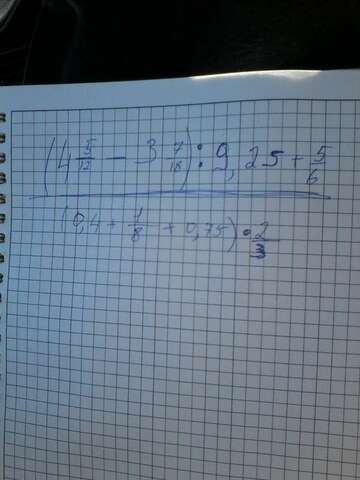 (4 5/12 − 3 7/18) : 9,25 + 5/6
(0,4 + 1/8 + 0,75) · 2/3